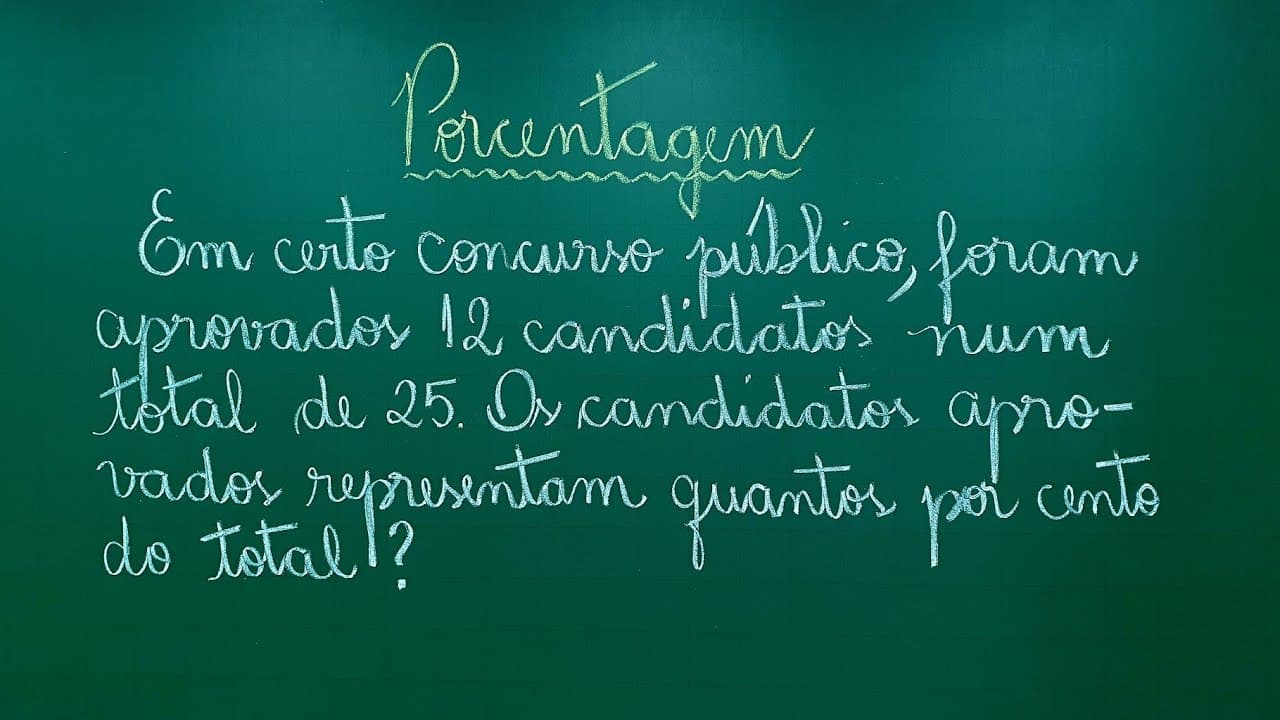 Porcentagem
Em certo concurso público, foram
aprovados 12 candidatos num
total de 25. Os candidatos apro-
vados representam quantos por cento
do total?